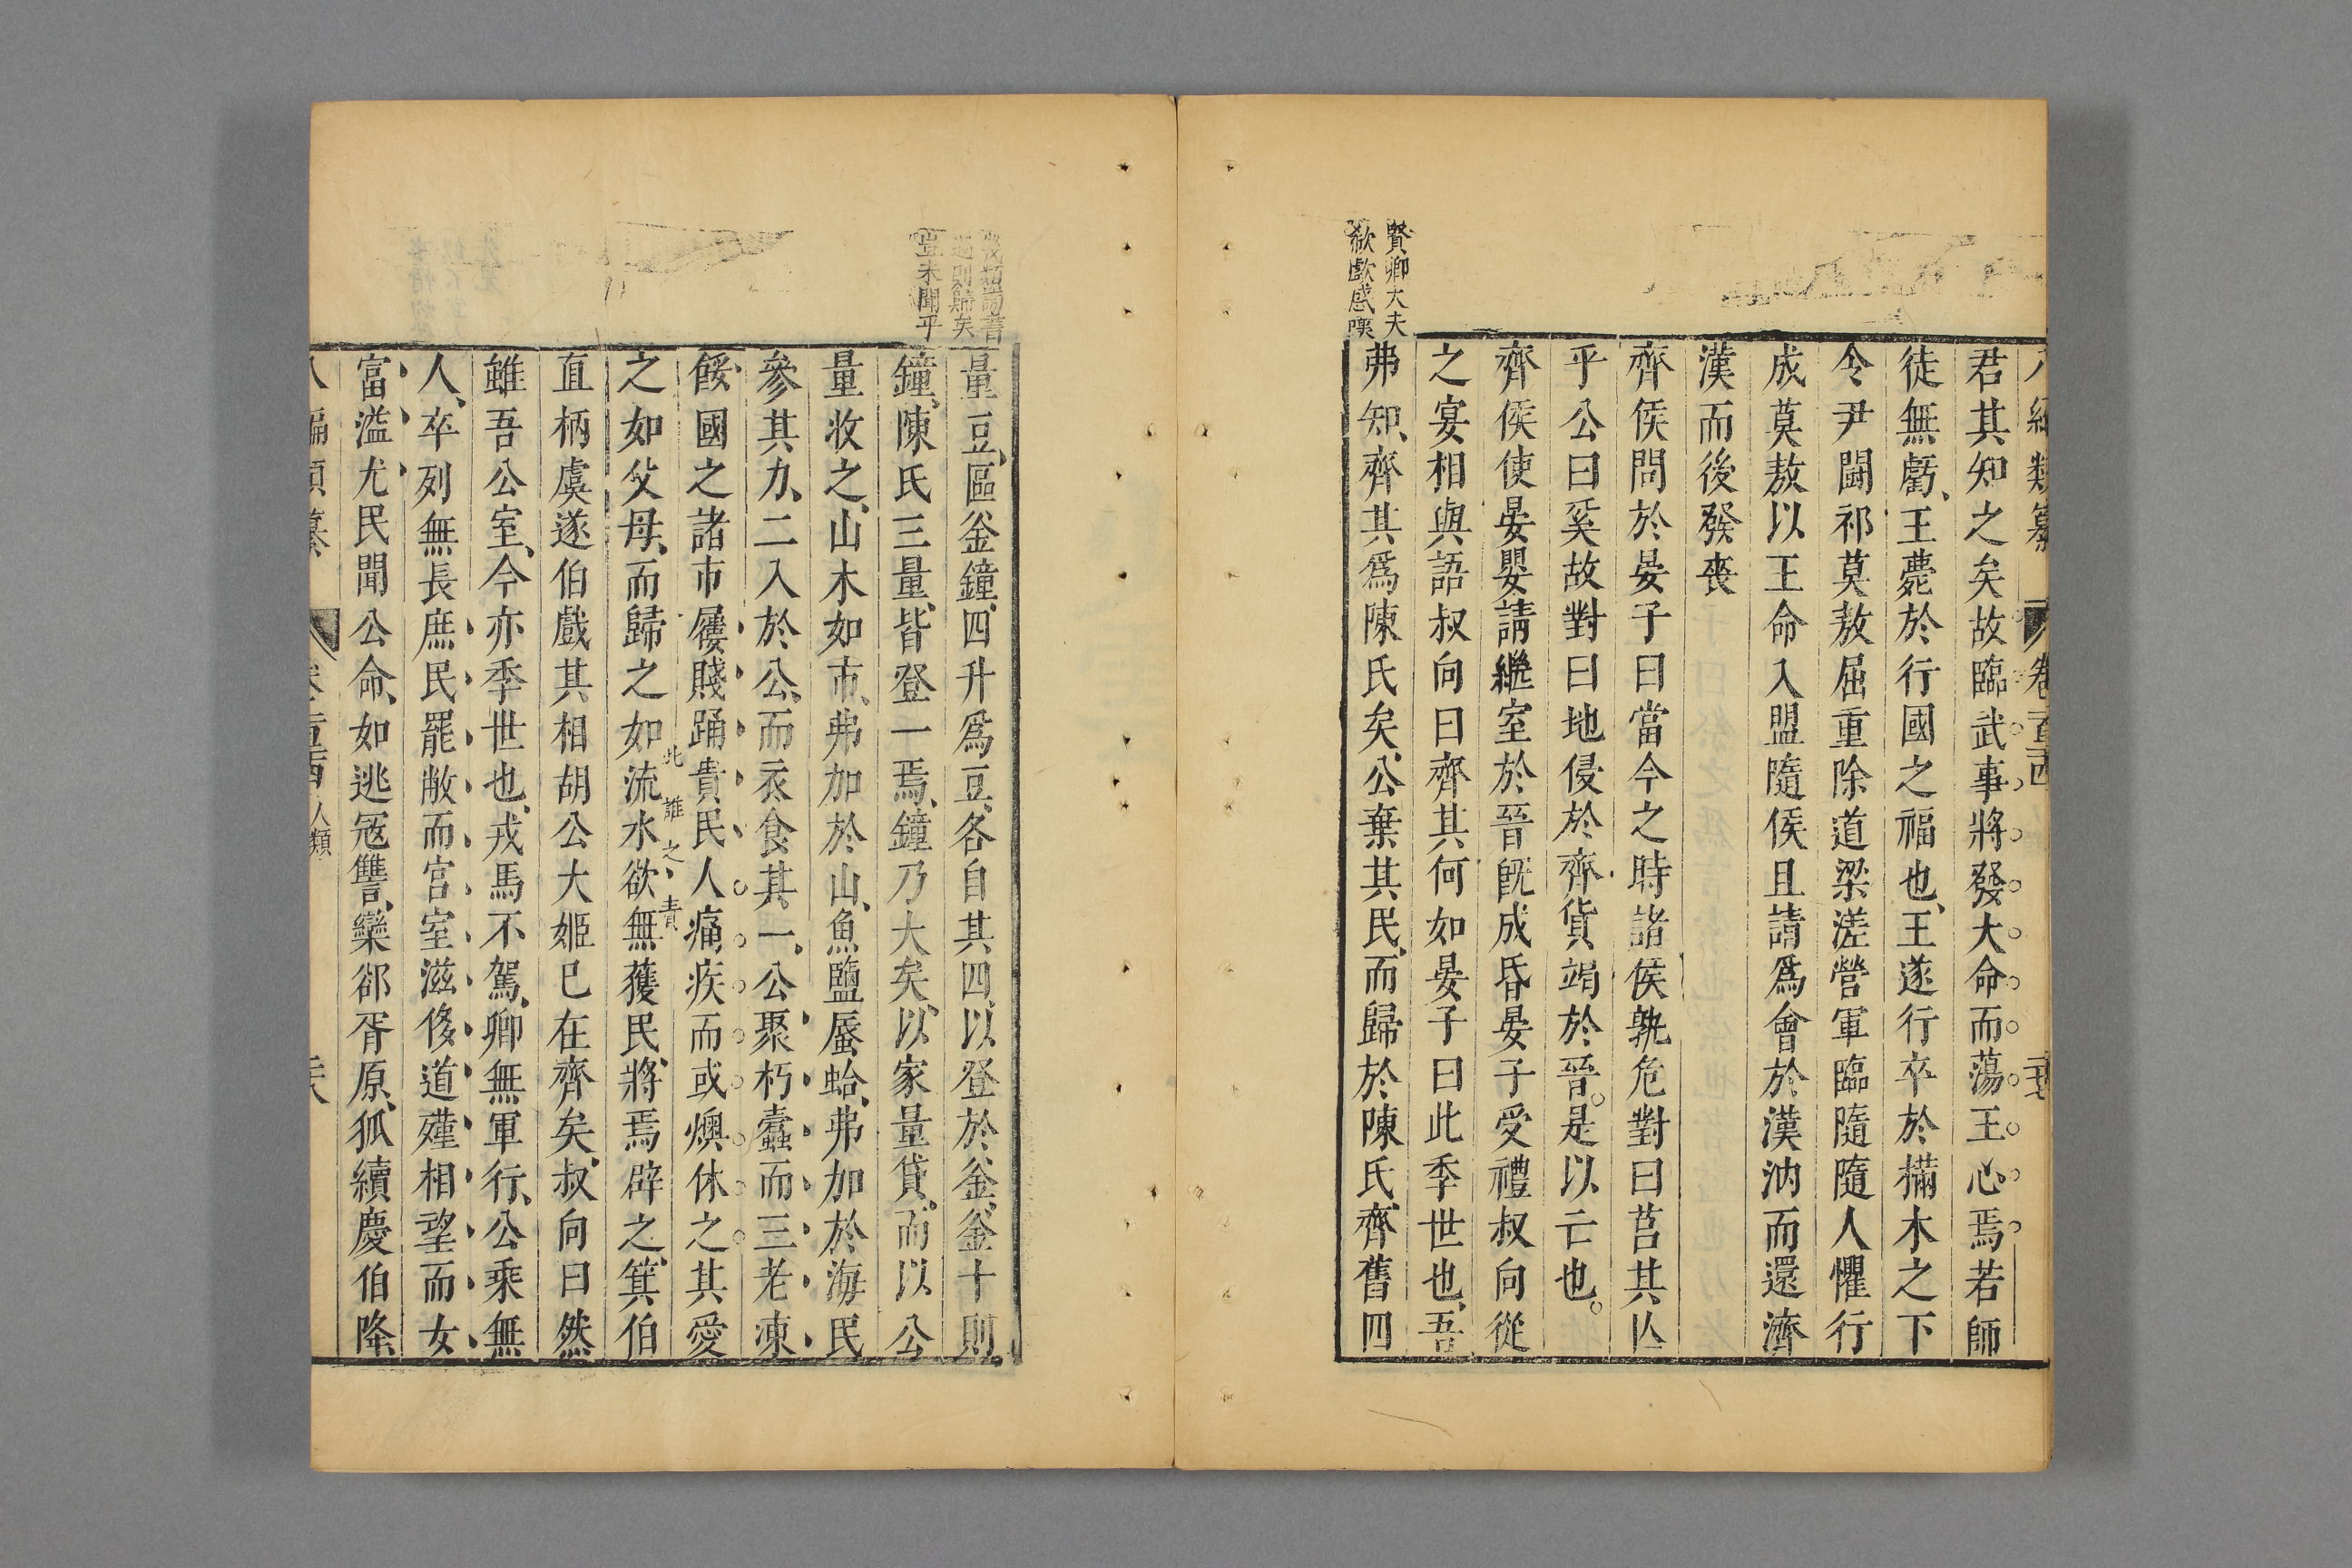 八編類纂 卷一百一十四
君其知之矣故臨武事將發大命而蕩王心焉若師
徒無虧王薨於行國之福也王遂行卒於樠木之下
令尹鬭祁莫敖屈重除道梁溠營軍臨隨隨人懼行
成莫敖以王命入盟隨侯且請為會於漢汭而還濟
漢而後發喪
齊侯問於晏子曰當今之時諸侯孰危對曰莒其亾
乎公曰奚故對曰地侵於齊貨竭於晉是以亡也
齊侯使晏嬰請繼室於晉旣成昏晏子受禮叔向從
之宴相與語叔向曰齊其何如晏子曰此季世也吾
賢卿大夫
歔欷感懷
弗知齊其爲陳氏矣公棄其民而歸於陳氏齊舊四
量豆區釡鐘四升爲豆各自其四以登於釡釡十則
豈未聞乎
鐘陳氏三量皆登一焉鐘乃大矣以家量貸而以公
量收之山木如市弗加於山魚鹽蜃蛤弗加於海民
參其力二入於公而衣食其一公聚朽蠹而三老凍
餒國之諸市屨賤踊貴民人痛疾而或燠休之其愛
之如父母而歸之如流水欲無獲民將焉辟之箕伯
此誰之責
直柄虞遂伯戲其相胡公大姬已在齊矣叔向曰然
雖吾公室今亦季世也戎馬不駕卿無軍行公乘無
人卒列無長庶民罷敝而宮室滋侈道殣相望而女
富溢尤民聞公命如逃冦讐欒郤胥原狐續慶伯降
人類